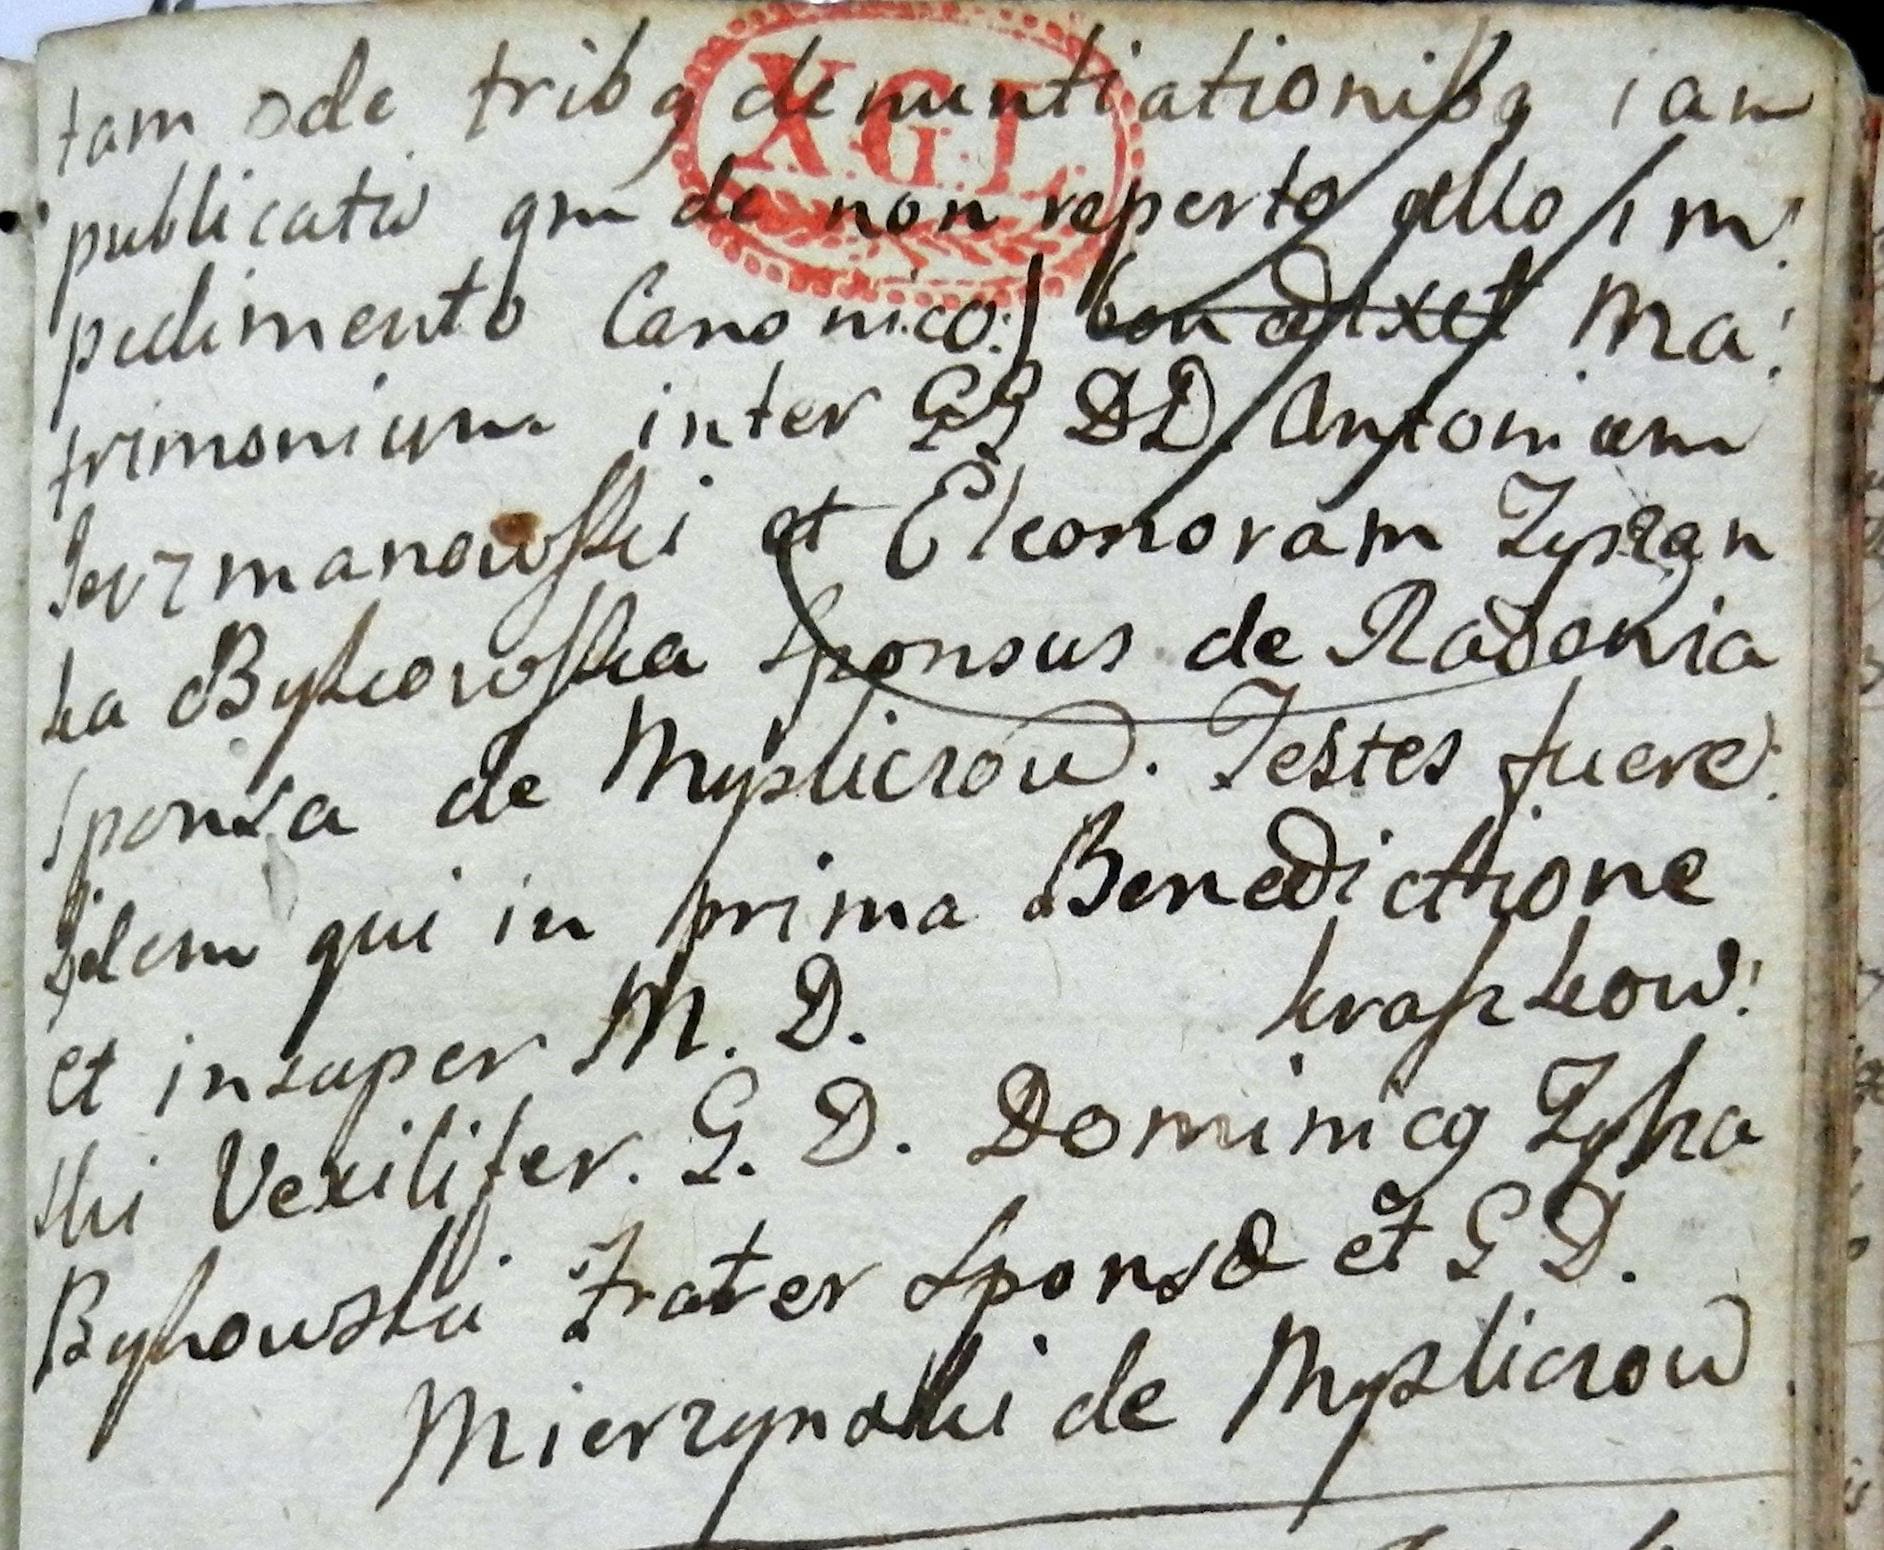 tam ode tribq denuntiationibq iam
publicatis qm de non reperto allo im:
pedimento Canonico:/ benedixit Ma:
trimonium inter GG DD. Antonium
Jerzmanowski et Eleonoram Zyszan
ka Bykowska Sponsus de Radonia
Sponsa de Mysliczow. Testes fuere
Iidem qui in prima Benedictione
et insuper M. D. kraszkow:
ski Vexilifer. G. D. Dominicq Zyka
Bykowski Frater Sponsæ et G D.
Mierzynski de Mysliczow
XGL